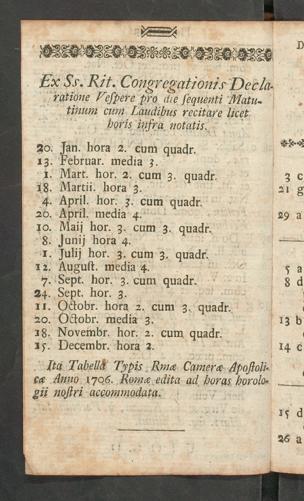 Ex Ss. Rit. Congregationis Decla-
ratione Veſpere pro die ſequenti Matu-
tinum cum Laudibus recitare licet
horis infra notatis.
20. Jan. hora 2. cum quadr.
13. Februar. media 3.
1. Mart. hor. 2. cum 3. quadr.
18. Martii. hora 3.
4. April. hor. 3. cum quadr.
20. April. media 4.
10. Maij hor. 3. cum 3. quadr.
8. Junij hora 4.
1. Julij hor. 3. cum 3. quadr.
12. Auguſt. media 4.
7. Sept. hor. 3. cum quadr.
24. Sept. hor. 3.
11. Octobr. hora 2. cum 3. quadr.
20. Octobr. media 3.
18. Novembr. hor. 2. cum quadr.
15. Decembr. hora 2.
Ita Tabella Typis Rmæ Cameræ Apoſtoli-
cæ Anno 1706. Romæ edita ad horas horolo-
gii noſtri accommodata.
D
3 c
21 g
29 a
5 a
8 d
13 b
14 c
15 d
26 a